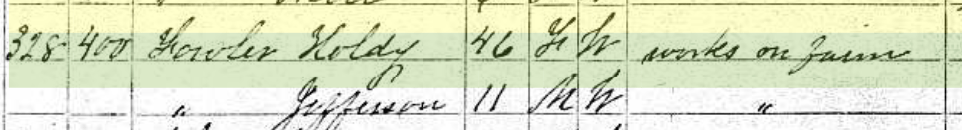 328 400 Fowler Holdy 46 F W works on farm
" Jefferson 11 M W "